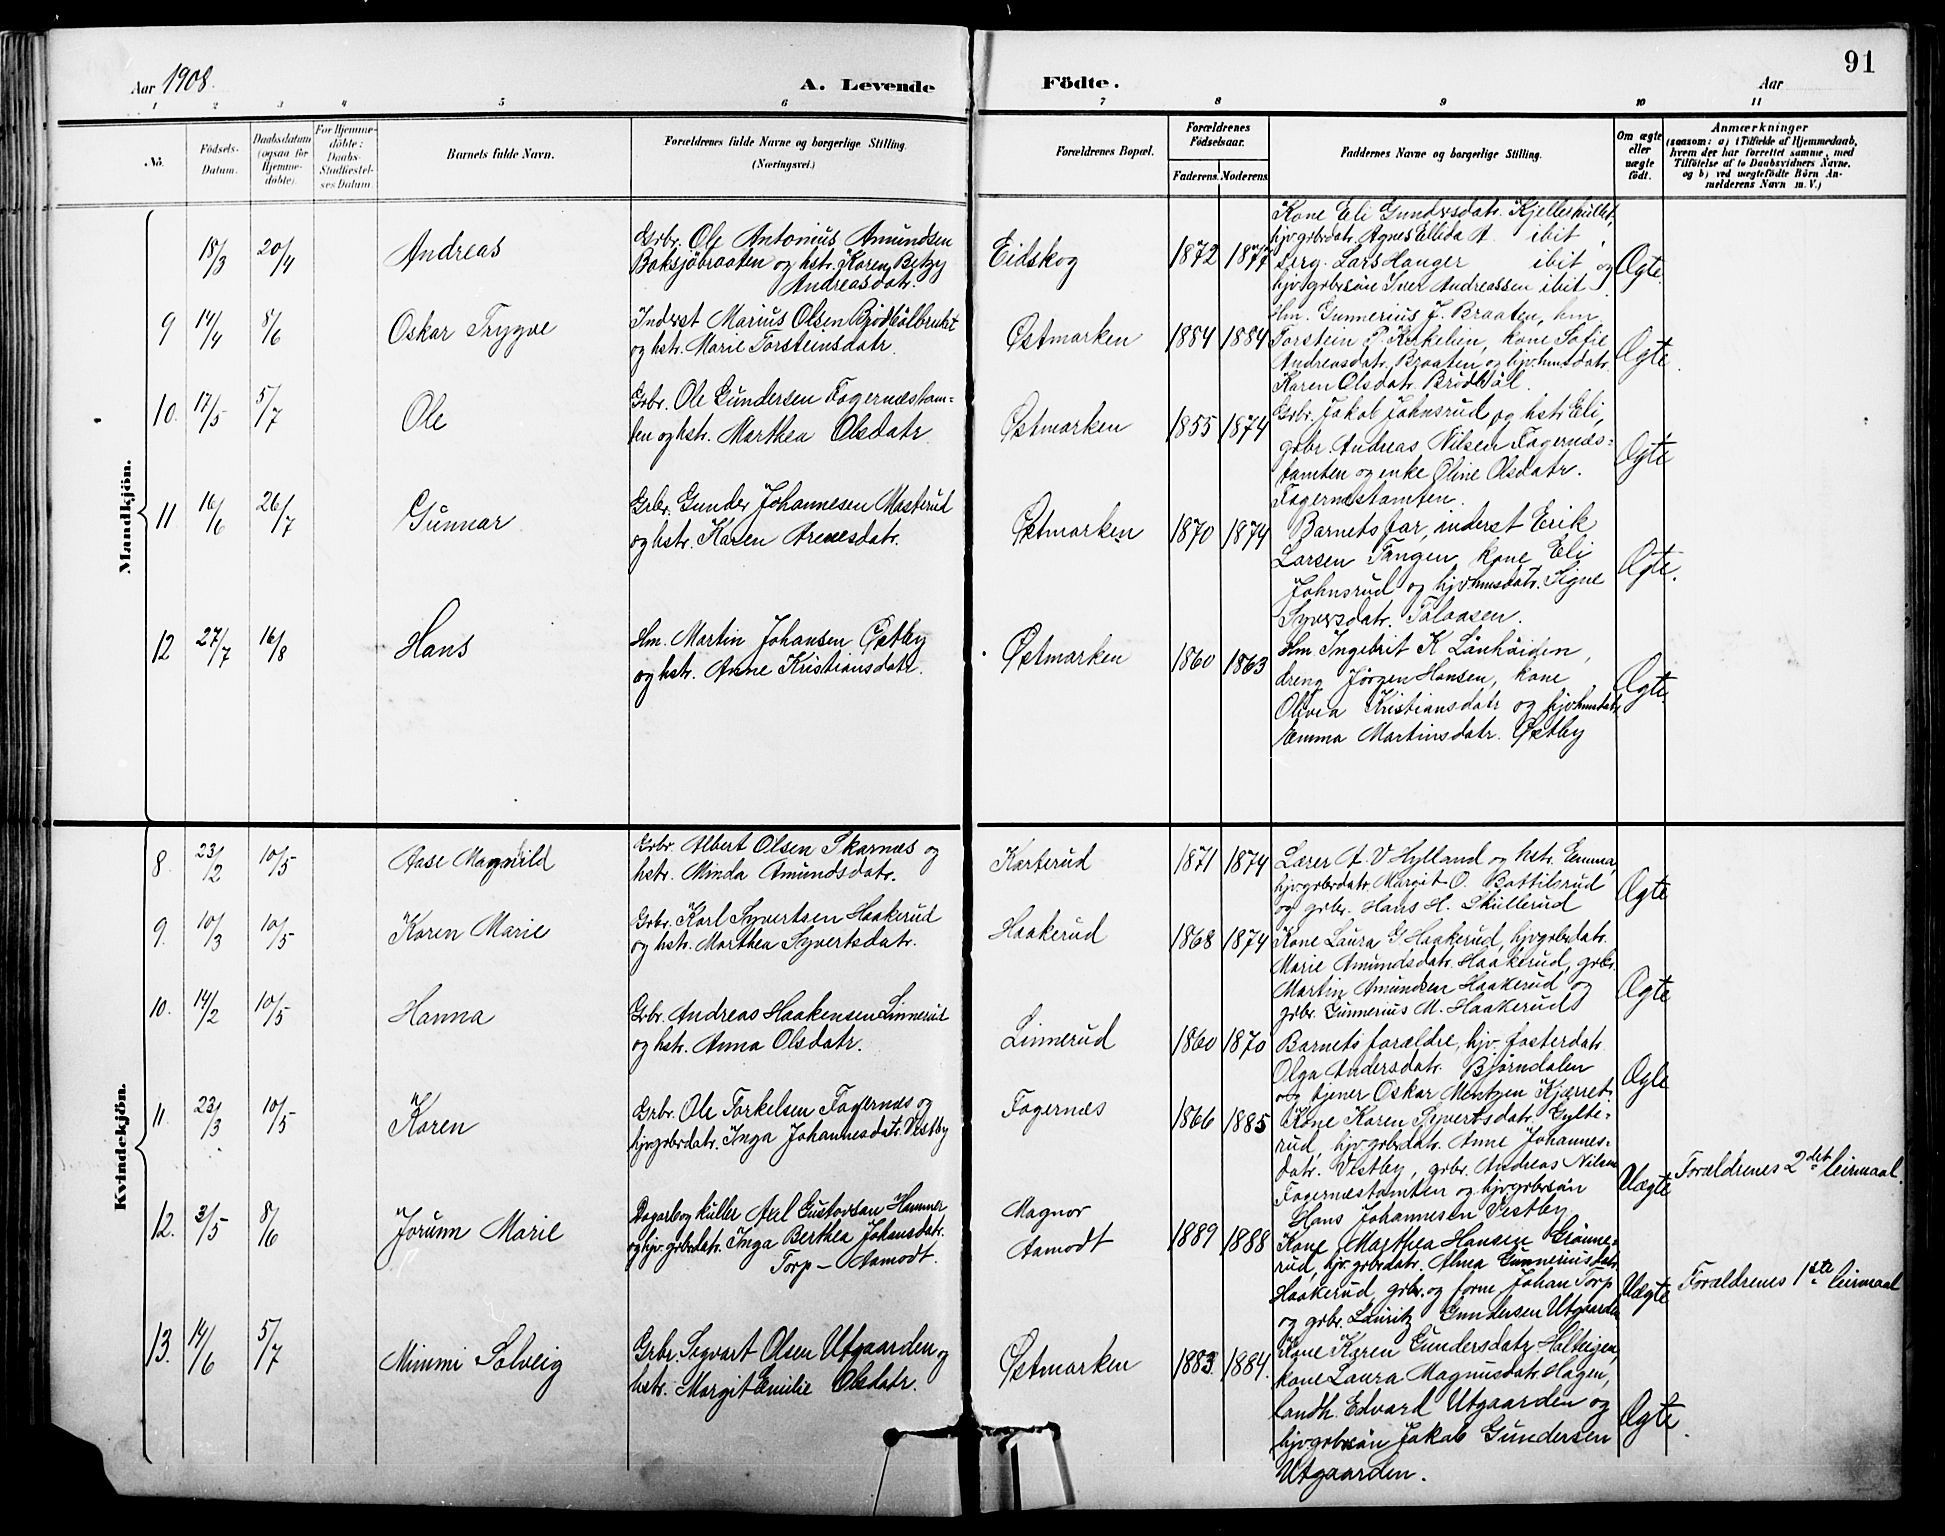 91
Aar 1908.
A. Levende
Födte.
Aar
1 2 3 4 5 6 7 8 9 10 11
No.
Födsels-
Datum.
Daabsdatum
(ogsaa for
Hjemme-
döbte).
For Hjemme-
döbte:
Daabs-
Stadfæstel-
ses Datum.
Barnets fulde Navn.
Forældrenes fulde Navne og borgerlige Stilling.
(Næringsvei.)
Forældrenes Bopæl.
Forældrenes
Födselsaar.
Faderens.
Moderens.
Faddernes Navne og borgerlige Stilling.
Om ægte
eller
uægte
födt.
Anmærkninger
(saasom: a) i Tilfælde af Hjemmedaab,
hvem der har forrettet samme, med
Tilföielse af to Daabsvidners Navne.
og b) ved uægtefödte Börn An-
melderens Navn m. V.)
Mandkjön.
15/3 20/4 Andreas
Grbr. Ole Antonius Amundsen
Baksjöbraaten og hstr. Karen Betzy
Andreasdatr.
Eidskog 1872 1877
Kone Eli Gundersdatr. Kjelleshullet,
hjv grbrdatr. Agnes Ellida A. ibit,
Lars Hanger ibit og
hjv. grbrsön Iver Andreassen ibit.
Ægte.
9 14/4 8/6 Oskar Trygve
Inderst Marius Olsen Brödbölbruket
og hstr. Marie Torsteinsdatr.
Østmarken 1884 1884
Hm. Gunnerius J. Braaten, hm.
Torstein P. Kirkelien, kone Sofie
Andreasdatr. Braaten og hjv. hmdatr.
Karen Olsdatr. Brödböl.
Ægte.
10. 17/5 5/7 Ole
Grbr. Ole Gundersen Fagernæstom=
ten og hstr. Marthea Olsdatr.
Østmarken 1855 1874
Grbr. Jakob Johnsrud og hstr Eli,
grbr. Andreas Nilsen Fagernæs=
tomten og enke Oline Olsdatr.
Fagernæstomten.
Ægte
11 16/6 26/7 Gunnar
Grbr. Gunder Johannesen Masterud
og hstr. Karen Arnesdatr.
Østmarken 1870 1874
Barnets far, inderst Erik
Larsen Tangen, kone Eli
Johnsrud og hjv hmsdatr. Signe
Syversdatr. Talaasen.
Ægte.
12 27/7 16/8 Hans
Hm. Martin Johansen Østby
og hstr. Anne Kristiansdatr.
Østmarken 1860 1863
Hm Ingebrit K Lönhöiden,
dreng Jörgen Hansen, kone
Olivia Kristiansdatr og hjv hmdatr.
Emma Martinsdatr. Østby
Ægte.
Kvindekjön.
8. 23/2 10/5 Aase Magnild
Grbr. Albert Olsen Skarnæs og
hstr. Minda Amundsdatr.
Karterud 1871 1874
Lærer A. V Hylland og hstr. Emma,
hjv grbrdatr. Margit O. Bottilsrud
og grbr. Hans H. Skullerud
Ægte
9. 10/3 10/5 Karen Marie
Grbr. Karl Syvertsen Haakerud
og hstr. Marthea Syvertsdatr.
Haakerud 1868 1874
Kone Laura G Haakerud, hjv grbrdatr.
Marie Amundsdatr. Haakerud, grbr.
Martin Amundsen Haakerud og
grbr. Gunnerius M. Haakerud
Ægte
10. 14/2 10/5 Hanna
Grbr. Andreas Haakensen Linnerud
og hstr. Anna Olsdatr.
Linnerud 1860 1870
Barnets forældre, hjv. fosterdatr.
Olga Andersdatr. Björndalen
og tjener Oskar Mentzen Kjærret.
Ægte
11. 23/3 10/5 Karen
Grbr. Ole Torkelsen Fagernæs og
hjv grbrdatr. Inga Johannesdatr. Vestby
Fagernæs 1866 1885
Kone Karen Syvertsdatr. Gylte=
rud, hjv grbrdatr. Anne Johannes=
datr. Vestby, grbr. Andreas Nilsen
Fagernæstomten og hjv grbrsön
Hans Johannesen Vestby
Uægte Forældrenes 2det leirmaal.
12. 3/5 8/6 Jorunn Marie
Dagarb og kuller Axel Gustavsan Hammer
og hjv. grbrdatr. Inga Berthea Johansdatr.
Torp – Aamodt.
Magnor
Aamodt 1889 1888
Kone Marthea Hansen Grönne=
rud, hjv. grbrdatr. Alma Gunneriusdatr.
Haakerud, grbr. og form. Johan Torp
og grbr. Lauritz Gundersen Utgaarden
Uægte Forældrenes 1ste leirmaal
13. 14/6 5/7 Mimmi Solveig
Grbr. Sigvart Olsen Utgaarden og
hstr. Margit Emilie Olsdatr.
Østmarken 1883 1884.
Kone Karen Gundersdatr.
kone Laura Magnusdatr. Hagen,
landh. Edvard Utgaarden og
hjv grbrsön Jakob Gundersen
Utgaarden.
Ægte.